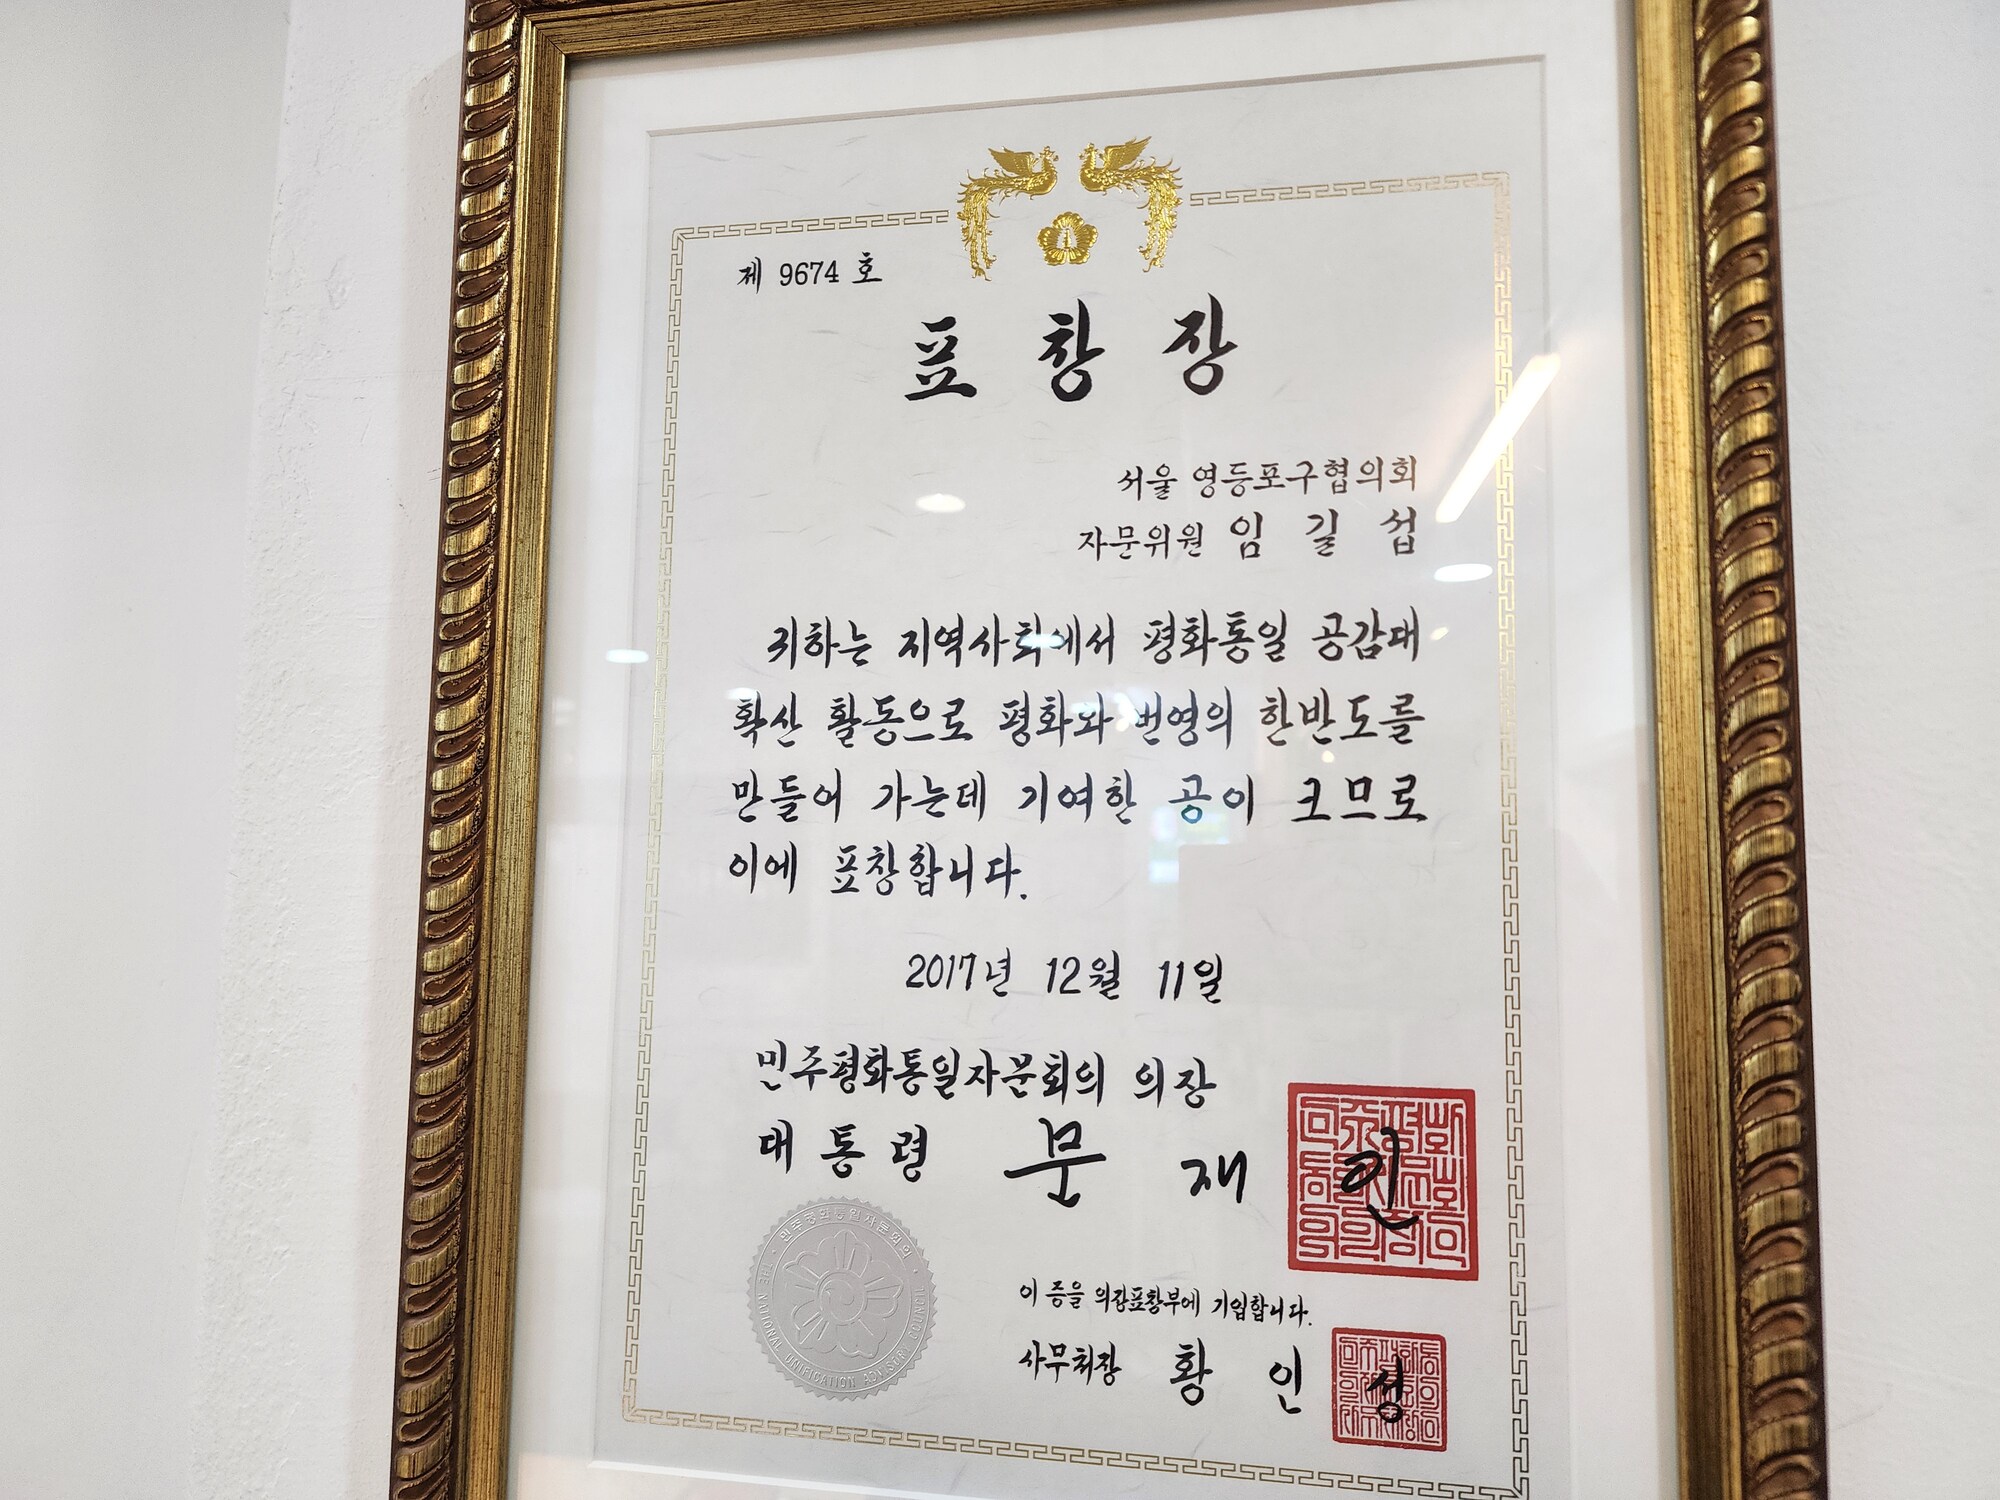 제 9674 호
표 창 장
서울 영등포구협의회
자문위원 임 길 섭
귀하는 지역사회에서 평화통일 공감대
확산 활동으로 평화와 번영의 한반도를
만들어 가는데 기여한 공이 크므로
이에 표창합니다.
2017년 12월 11일
민주평화통일자문회의 의장
대통령 문 재 인
민주평화통일자문회의
THE NATIONAL UNIFICATION ADVISORY COUNCIL
이 증을 의장표창부에 기입합니다.
사무처장 황 인 성